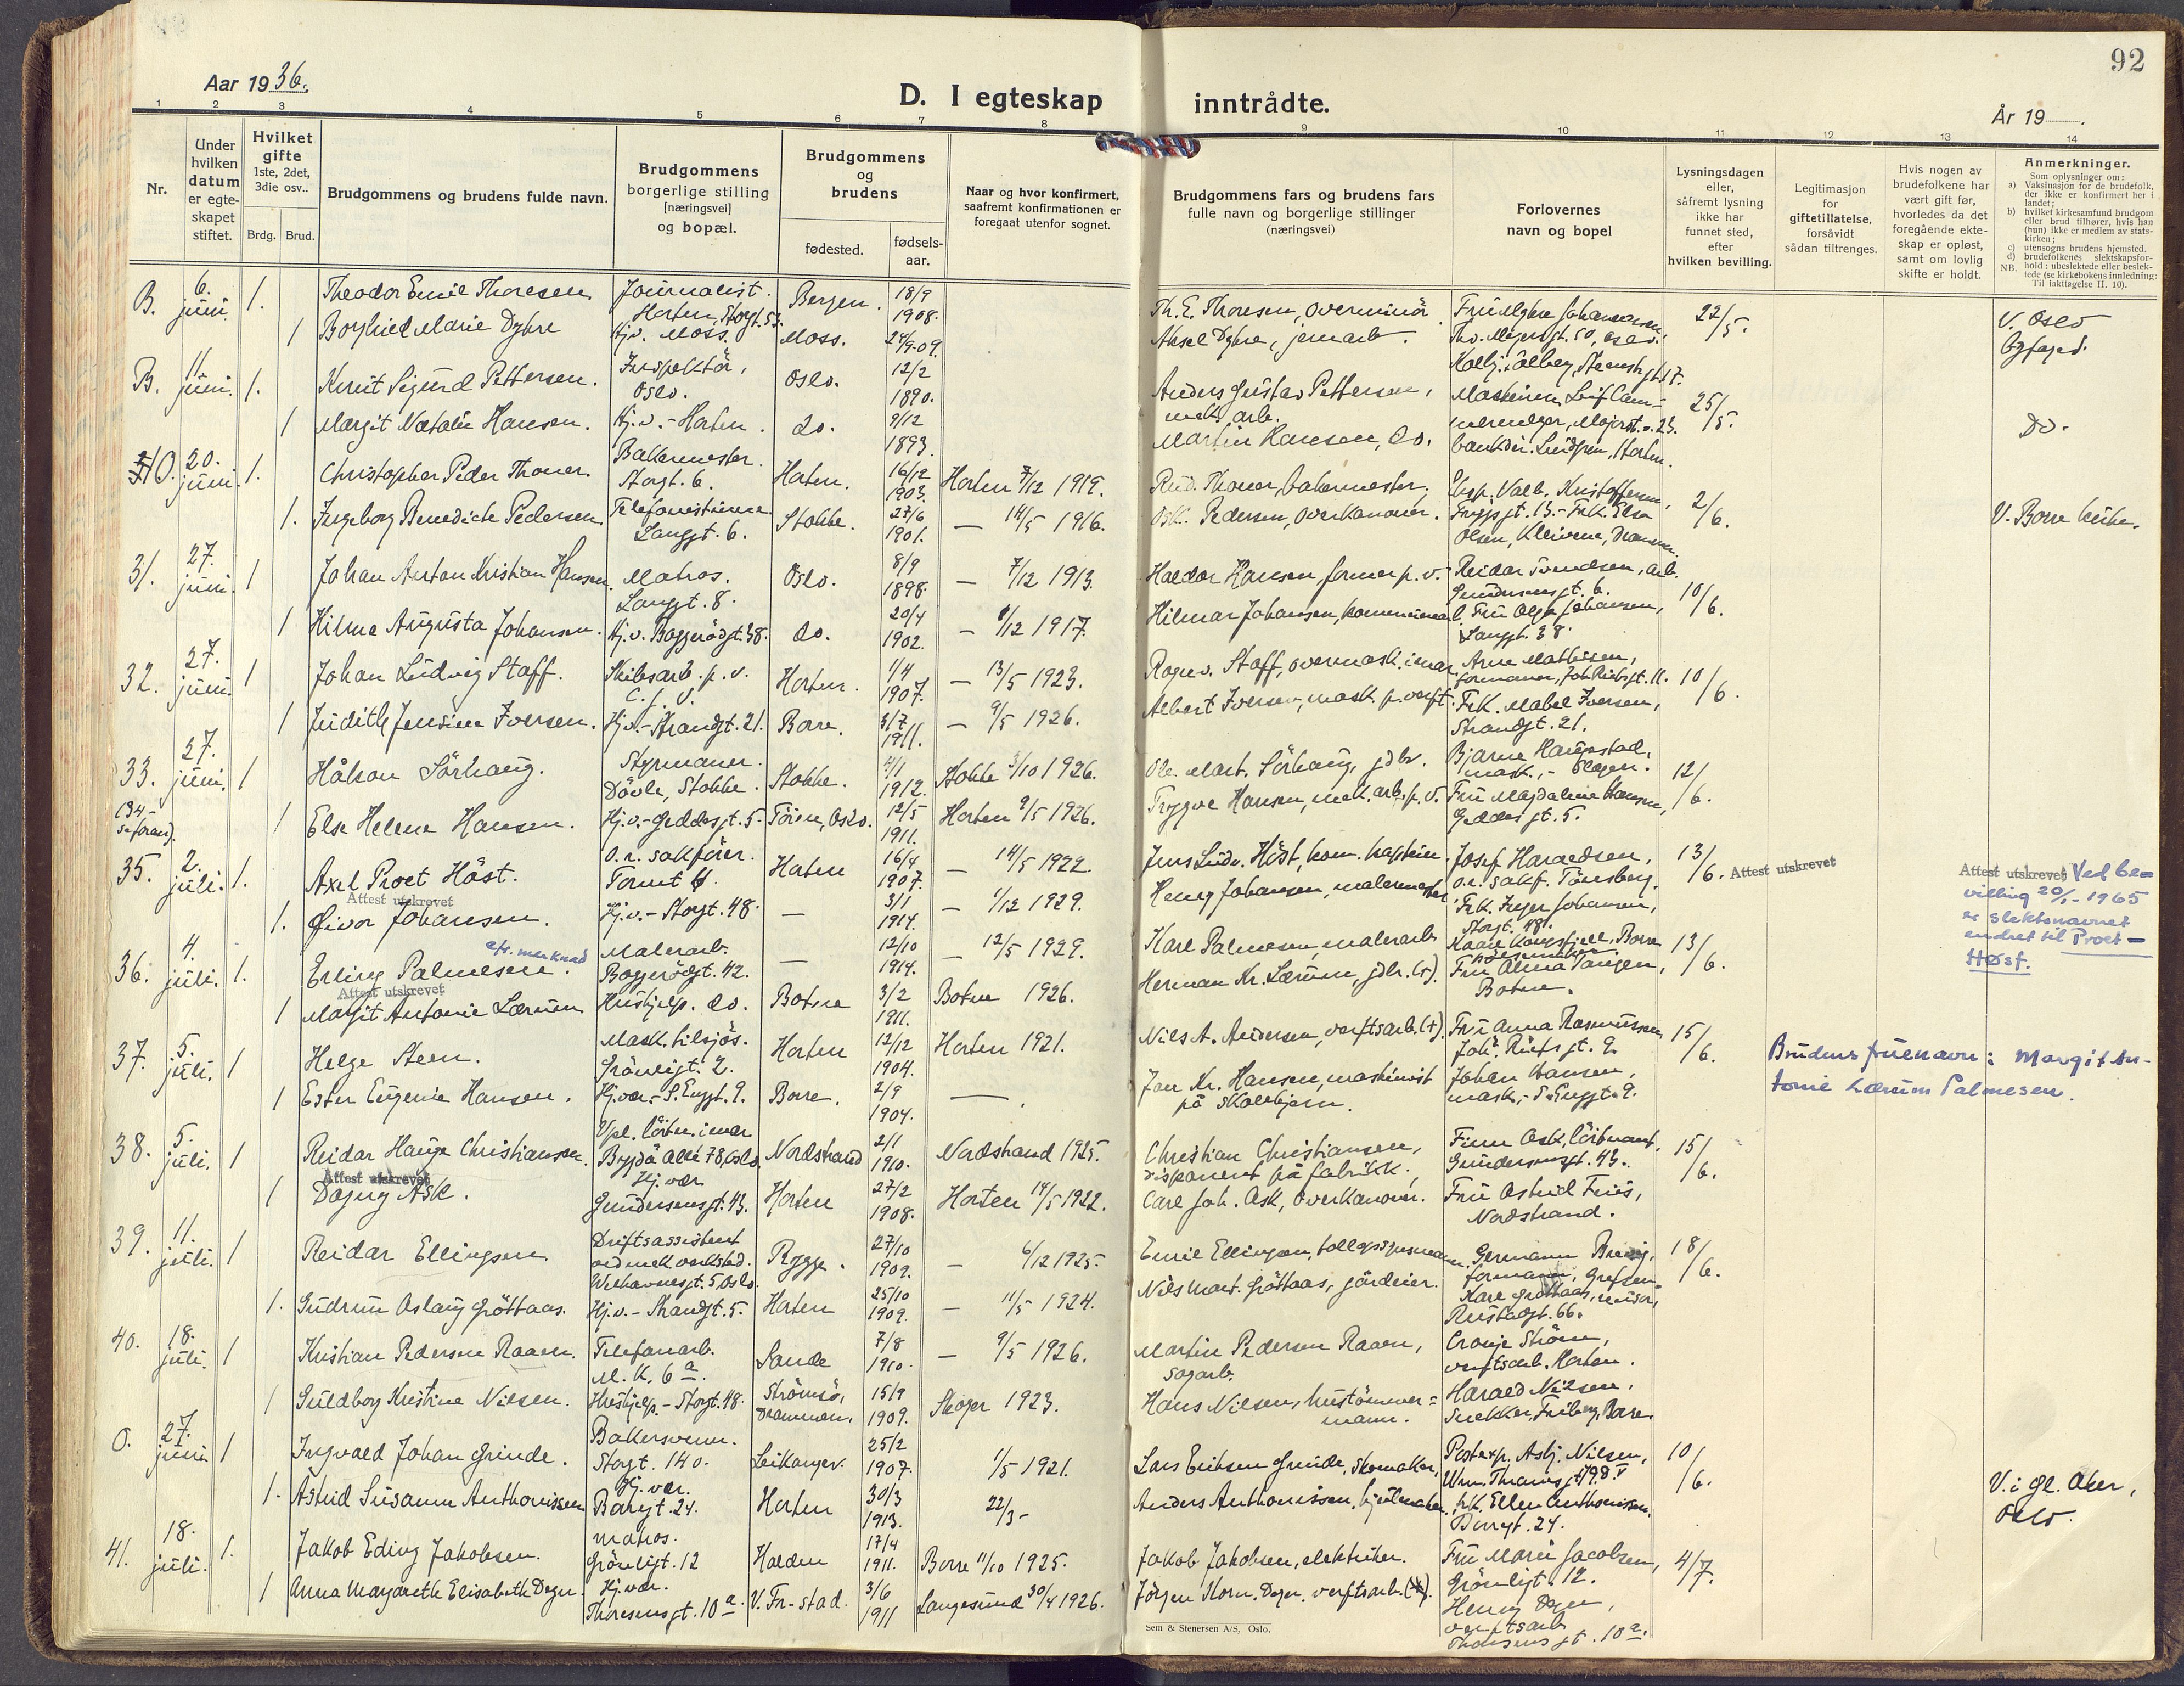 92
Aar 1936.
D. I egteskap inntrådte.
År 19
1 2 3 4 5 6 7 8 9 10 11 12 13 14
Nr.
Under hvilken datum er egteskapet stiftet.
Hvilket gifte 1ste, 2det, 3die osv..
Brdg. Brud.
Brudgommens og brudens fulde navn.
Brudgommens borgerlige stilling [næringsvei] og bopæl.
Brudgommens og brudens
fødested.
fødsels-aar.
Naar og hvor konfirmert, saafremt konfirmationen er foregaat utenfor sognet.
Brudgommens fars og brudens fars fulle navn og borgerlige stillinger (næringsvei)
Forlovernes navn og bopel
Lysningsdagen eller, såfremt lysning ikke har funnet sted, efter hvilken bevilling.
Legitimasjon for giftetillatelse, forsåvidt sådan tiltrenges.
Hvis nogen av brudefolkene har vært gift før, hvorledes da det foregående ekteskap er opløst, samt om lovlig skifte er holdt.
Anmerkninger.
Som oplysninger om:
a) Vaksinasjon for de brudefolk, der ikke er konfirmert her i landet;
b) hvilket kirkesamfund brudgom eller brud tilhører, hvis han (hun) ikke er medlem av statskirken;
c) utensogns brudens hjemsted.
d) brudefolkenes slektskapsforhold: ubeslektede eller beslektede (se kirkebokens innledning: Til iakttagelse II. 10).
NB.
B. 6. juni. 1. Theodor Emil Thoresen Journalist. Horten, Storgt. 53. Bergen. 18/9 1908. Th. E. Thoresen, overminör 22/5. V. Oslo Byfogd.
1 Borghild Marie Dybre Hj.v. Moss. Moss. 24/9-09. Aksel Dybre, jernarb. Thv. Meyersgt. 50, Oslo.
B. 11. juni. 1. Knut Sigurd Pettersen. Inspektör, Oslo. Oslo. 12/2 1890. Anders Gustav Pettersen, mek. arb. 25/5. Do.
1 Margit Natalie Hansen. Hj.v. - Horten. do. 9/12 1893. Martin Hansen, do.
30. 20. juni. 1. Christopher Peder Thoner. Bakermester. Storgt. 6. Horten. 16/12 1903. Horten 7/12 1919. Rud. Thoner, bakermester. 2/6. V. Borre kirke.
1. Ingeborg Benedicte Pedersen. Telefonistinne Langgt. 6. Stokke. 27/6 1901. — 14/5 1916. Osk. Pedersen, overkanoner. Olsen, Kleivene, Drammen.
31. 27. juni. 1 Johan Anton Kristian Hansen Matros. Langgt. 8. Oslo. 8/9 1898. — 7/12 1913. Haldor Hansen, former p. v. Gundersensgt. 6. 10/6.
1 Hilma Augusta Johansen. Hj.v. Baggerödgt. 38. do. 20/4 1902. — 1/12 1917. Fru Olga Johansen, Langgt. 38.
32. 27. juni. 1 Johan Ludvig Staff. Skibsarb. p. v. Horten. 1/4 1907. — 13/5 1923. Ragnv. Staff, overmask. i mar. Arne Mathisen, 10/6.
1 Judith Jensine Iversen. Hj.v. - Strandgt. 21. Borre. 3/7 1911. — 9/5 1926. Albert Iversen, mask. p. verft. Frk. Mabel Iversen, Strandgt. 21.
33. 27. juni. 1 Håkon Sörhaug. Styrmann. Dövle, Stokke. Stokke. 4/1 1912. Stokke 3/10 1926. Ole Mart. Sörhaug, gdbr. Bjarne Haugestad, mask., - Slagen. 12/6.
(34, - se foran). 1 Else Helene Hansen. Hj.v. - Geddesgt. 5. Töien, Oslo. 12/5 1911. Horten 9/5 1926. Trygve Hansen, mek. arb. p. v. Fru Magdalene Hansen, Geddesgt. 5.
35. 2. juli. 1. Axel Proet Höst. O.r. sakförer. Horten 16/4 1907. — 14/5 1922. Jens Ludv. Höst, kom. kaptein. Josef Haraldsen, o.r. sakf. Tönsberg. 13/6. Attest utskrevet
Attest utskrevet Ved bevilling 20/1-1965 er slektsnavnet endret til Proet-Høst.
Attest utskrevet
1. Eivor Johansen. Hj.v. - Storgt. 48. — 3/1 1914. — 1/12 1929. Henry Johansen, malermester Frk. Inger Johansen, Storgt. 48.
cfr. merknad
36. 4. juli. 1. Erling Palmesen. Malerarb. Baggerödgt. 42. — 12/10 1914. — 12/5 1929. Karl Palmesen, malerarb. 13/6.
Attest utskrevet
1 Margit Antonie Lærum Hushjelp. do. Botne 3/2 1911. Botne 1926. Herman Kr. Lærum, gdbr. (+). Fru Anna Tangen, Botne.
37. 5. juli. 1 Helge Steen. Mask. tilsjös. Grönligt. 2. Horten 12/12 1904. Horten 1921. Nils A. Andersen, verftsarb. (+). Fru Anna Rasmussen, 15/6. Brudens fulle navn: Margit Antonie Lærum Palmesen.
1 Ester Eugenie Hansen. Hj.vær. - S. Enggt. 9. Borre. 2/9 1904. — Jan Kr. Hansen, maskinist på Skallebjørn. Johan Hansen, mask. - S. Enggt. 9.
38. 5. juli. 1 Reidar Hauge Christiansen. Vpl. löitn. i mar. Bygdö Alle 78, Oslo. Nordstrand 2/1 1910. Nordstrand 1925. Christian Christiansen, disponent på fabrikk. Finn Ask, löitnant, Gundersensgt. 43. 15/6.
Attest utskrevet
1 Dagny Ask. Hj.vær Gundersensgt. 43. Horten 27/2 1908. Horten 14/5 1922. Carl Joh. Ask, overkanoner. Fru Astrid Friis, Nordstrand.
39. 11. juli. 1 Reidar Ellingsen Driftsassistent ved mek. verksted. Welhavensgt. 5, Oslo. Rygge. 27/10 1909. — 6/12 1925. Emil Ellingsen, tollopsynsmann, formann, Grefsen 18/6.
1. Gudrun Aslaug Gröttaas. Hj.v. - Strandgt. 5. Horten 25/10 1909. — 11/5 1924. Nils Mart. Gröttaas, gårdeier. Kare Gröttaas, Rustadgt. 66.
40. 18. juli. 1 Kristian Pedersen Raaen. Telefonarb. M. K. 6a. Sande 7/8 1910. — 9/5 1926. Martin Pedersen Raaen, sagarb. Cronje Ström, verftsarb. Horten.
1 Guldborg Kristine Nilsen. Hushjelp. - Storgt. 48. Strömsö, Drammen. 15/9 1909. Skoger 1923. Hans Nilsen, hustömmermann. Harald Nilsen, snekker, Friberg, Borre.
O. 27. juni 1 Ingvald Johan Grinde. Bakersvenn. Storgt. 140. Leikanger. 25/2 1907. 1/5 1921. Lars Eriksen Grinde, skomaker, Postexp. Asbj. Nilsen, 10/6. V. i gl. Aker, Oslo.
1. Astrid Susanne Anthonissen Hj.vær. Borregt. 24. Horten 30/3 1913. 22/3- Anders Anthonissen, hjulmaker. frk. Ellen Anthonissen. Borregt. 24.
41. 18. juli. 1. Jakob Eding Jakobsen. matros. Grönligt. 12 Halden 17/4 1911. Borre 11/10 1925. Jakob Jakobsen, elektriker. Fru Marie Jacobsen, Grönligt. 12. 4/7.
1 Anna Margareth Elisabeth Dager. Hj.vær. Thoresensgt. 10a. V. Fr-stad. 3/6 1911 Langesund 30/4 1926. Jörgen Korn. Dager, verftsarb. Henry Dager, verftsarb Thoresensgt. 10a.
Sem & Stenersen A/S, Oslo.